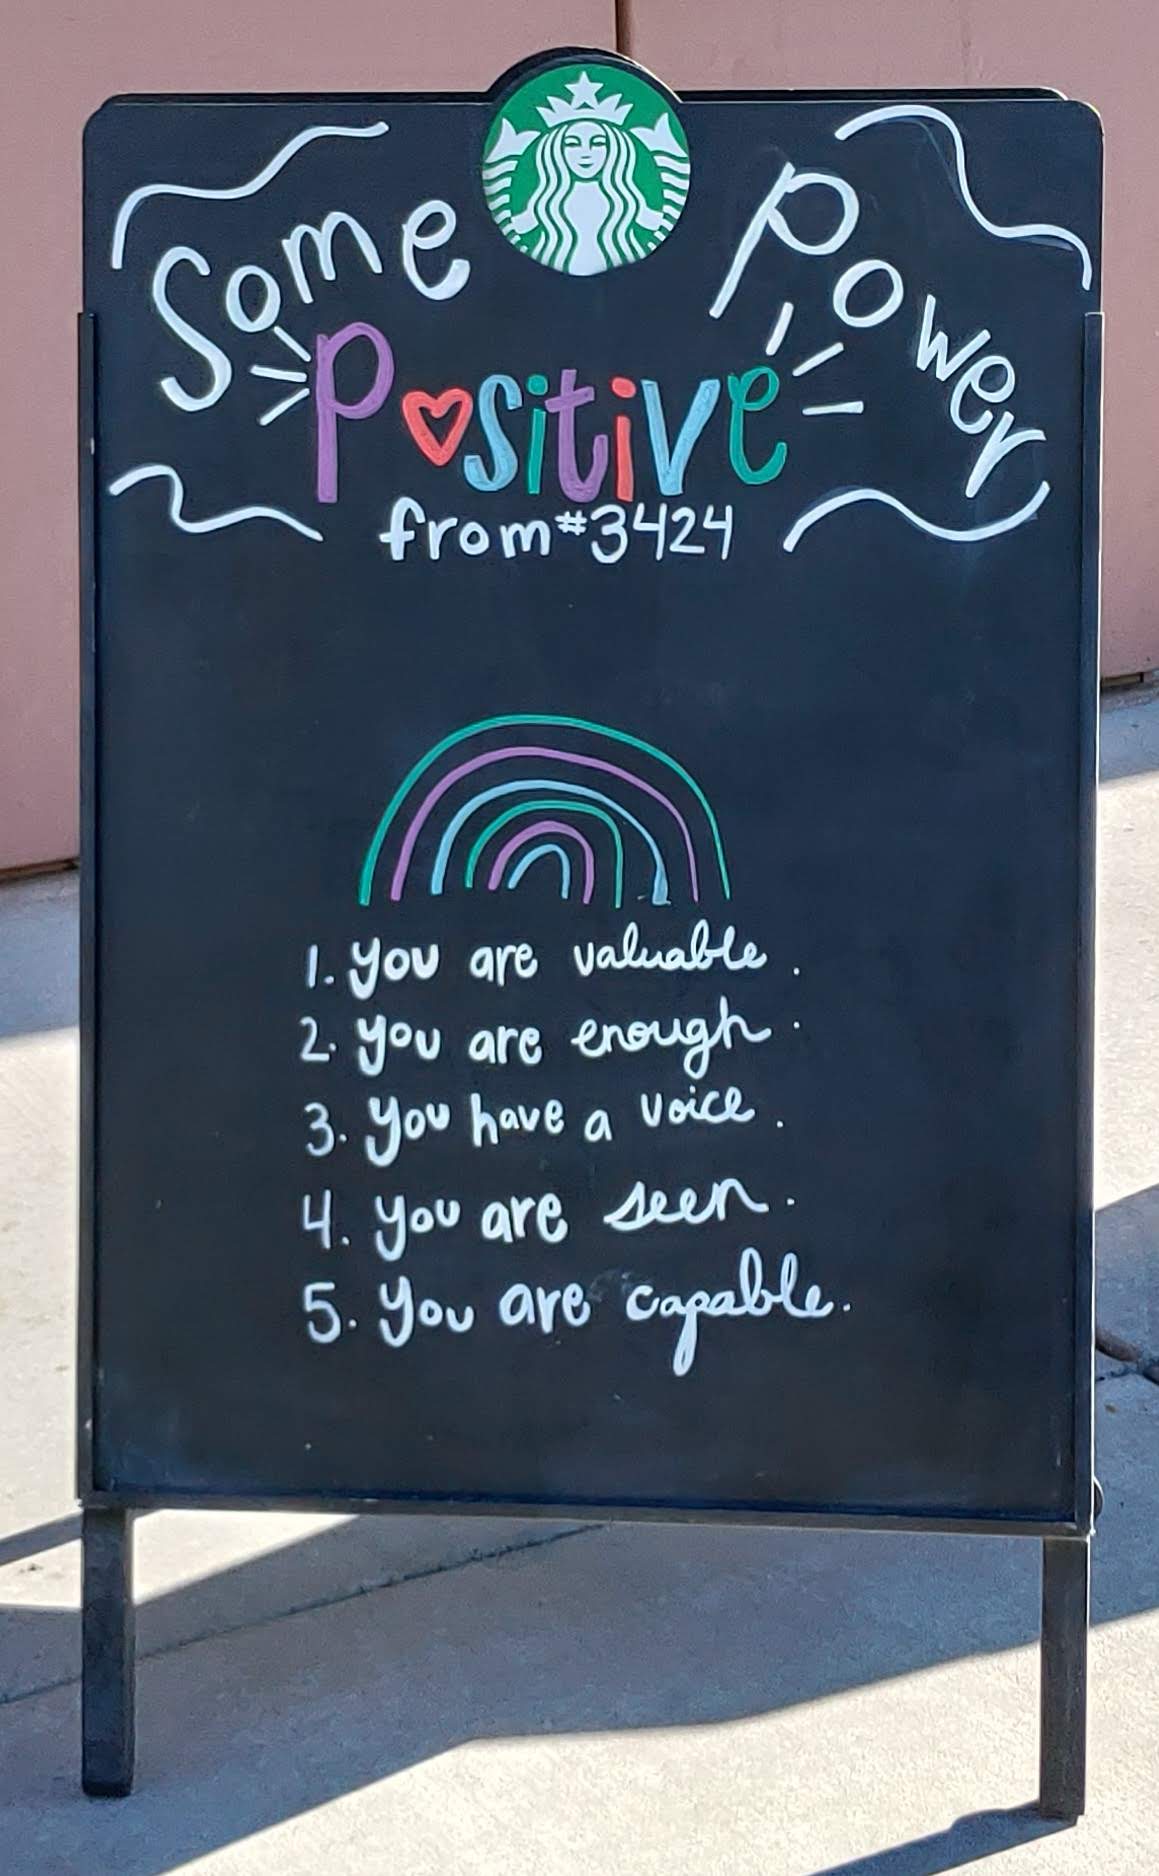 Some Power
Positive
from #3424
1. you are valuable.
2. you are enough.
3. you have a voice.
4. you are seen.
5. you are capable.